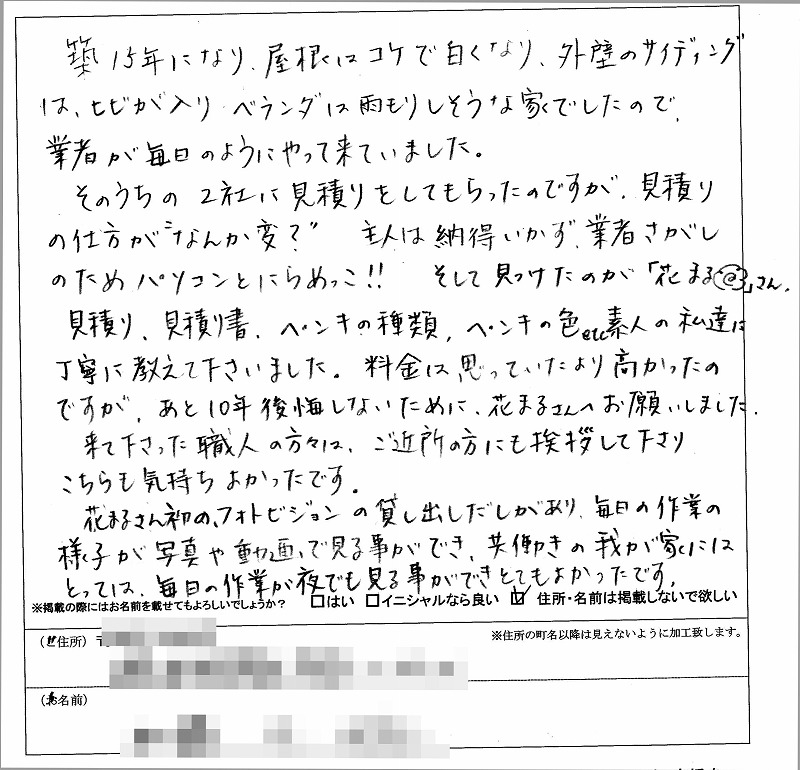 築15年になり、屋根はコケで白くなり、外壁のサイディング
は、ヒビが入り ベランダは雨もりしそうな家でしたので、
業者が毎日のようにやって来ていました。
そのうちの 2社に見積りをしてもらったのですが、見積り
の仕方が"なんか変?" 主人は納得いかず、業者さがし
のためパソコンとにらめっこ!! そして見つけたのが「花まる@」さん。
見積り、見積り書、ペンキの種類、ペンキの色etc素人の私達に
丁寧に教えて下さいました。料金は思っていたより高かったの
ですが、あと10年後悔しないために、花まるさんへお願いしました。
来て下さった職人の方々は、ご近所の方にも挨拶して下さり
こちらも気持ちよかったです。
花まるさん初の、フォトビジョンの貸し出しだしがあり、毎日の作業の
様子が写真や動画で見る事ができ、共働きの我が家には
とっては、毎日の作業が夜でも見る事ができとてもよかったです。
※掲載の際にはお名前を載せてもよろしいでしょうか? □はい □イニシャルなら良い ☑ 住所・名前は掲載しないで欲しい
(ご住所) 〒 ※住所の町名以降は見えないように加工致します。
(お名前)